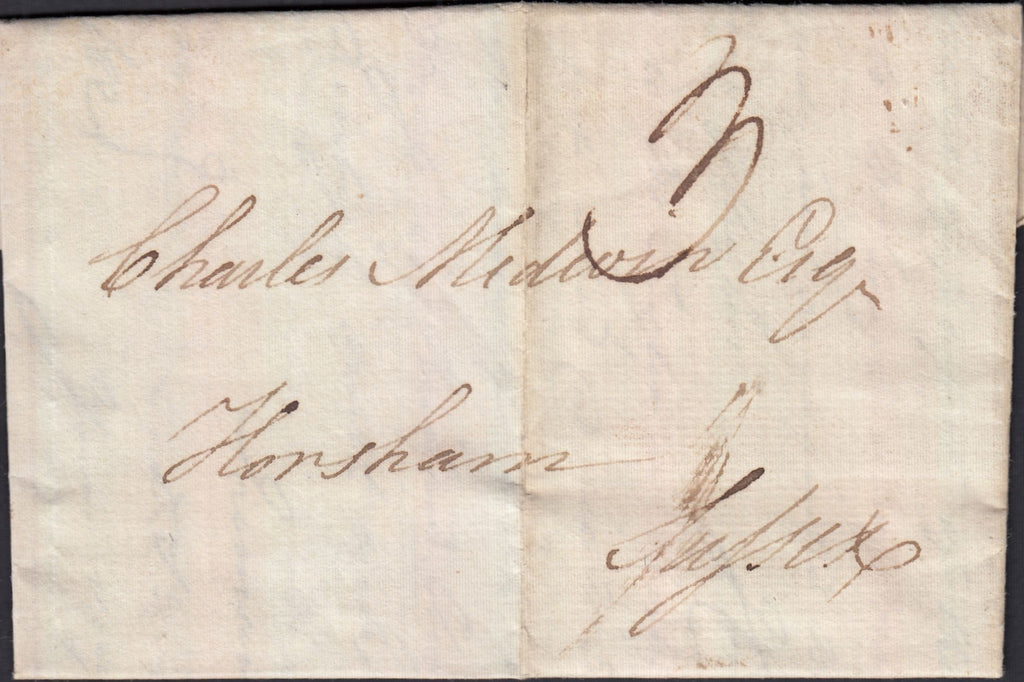 3
Charles Medwin Esqr
Horsham
Sussex